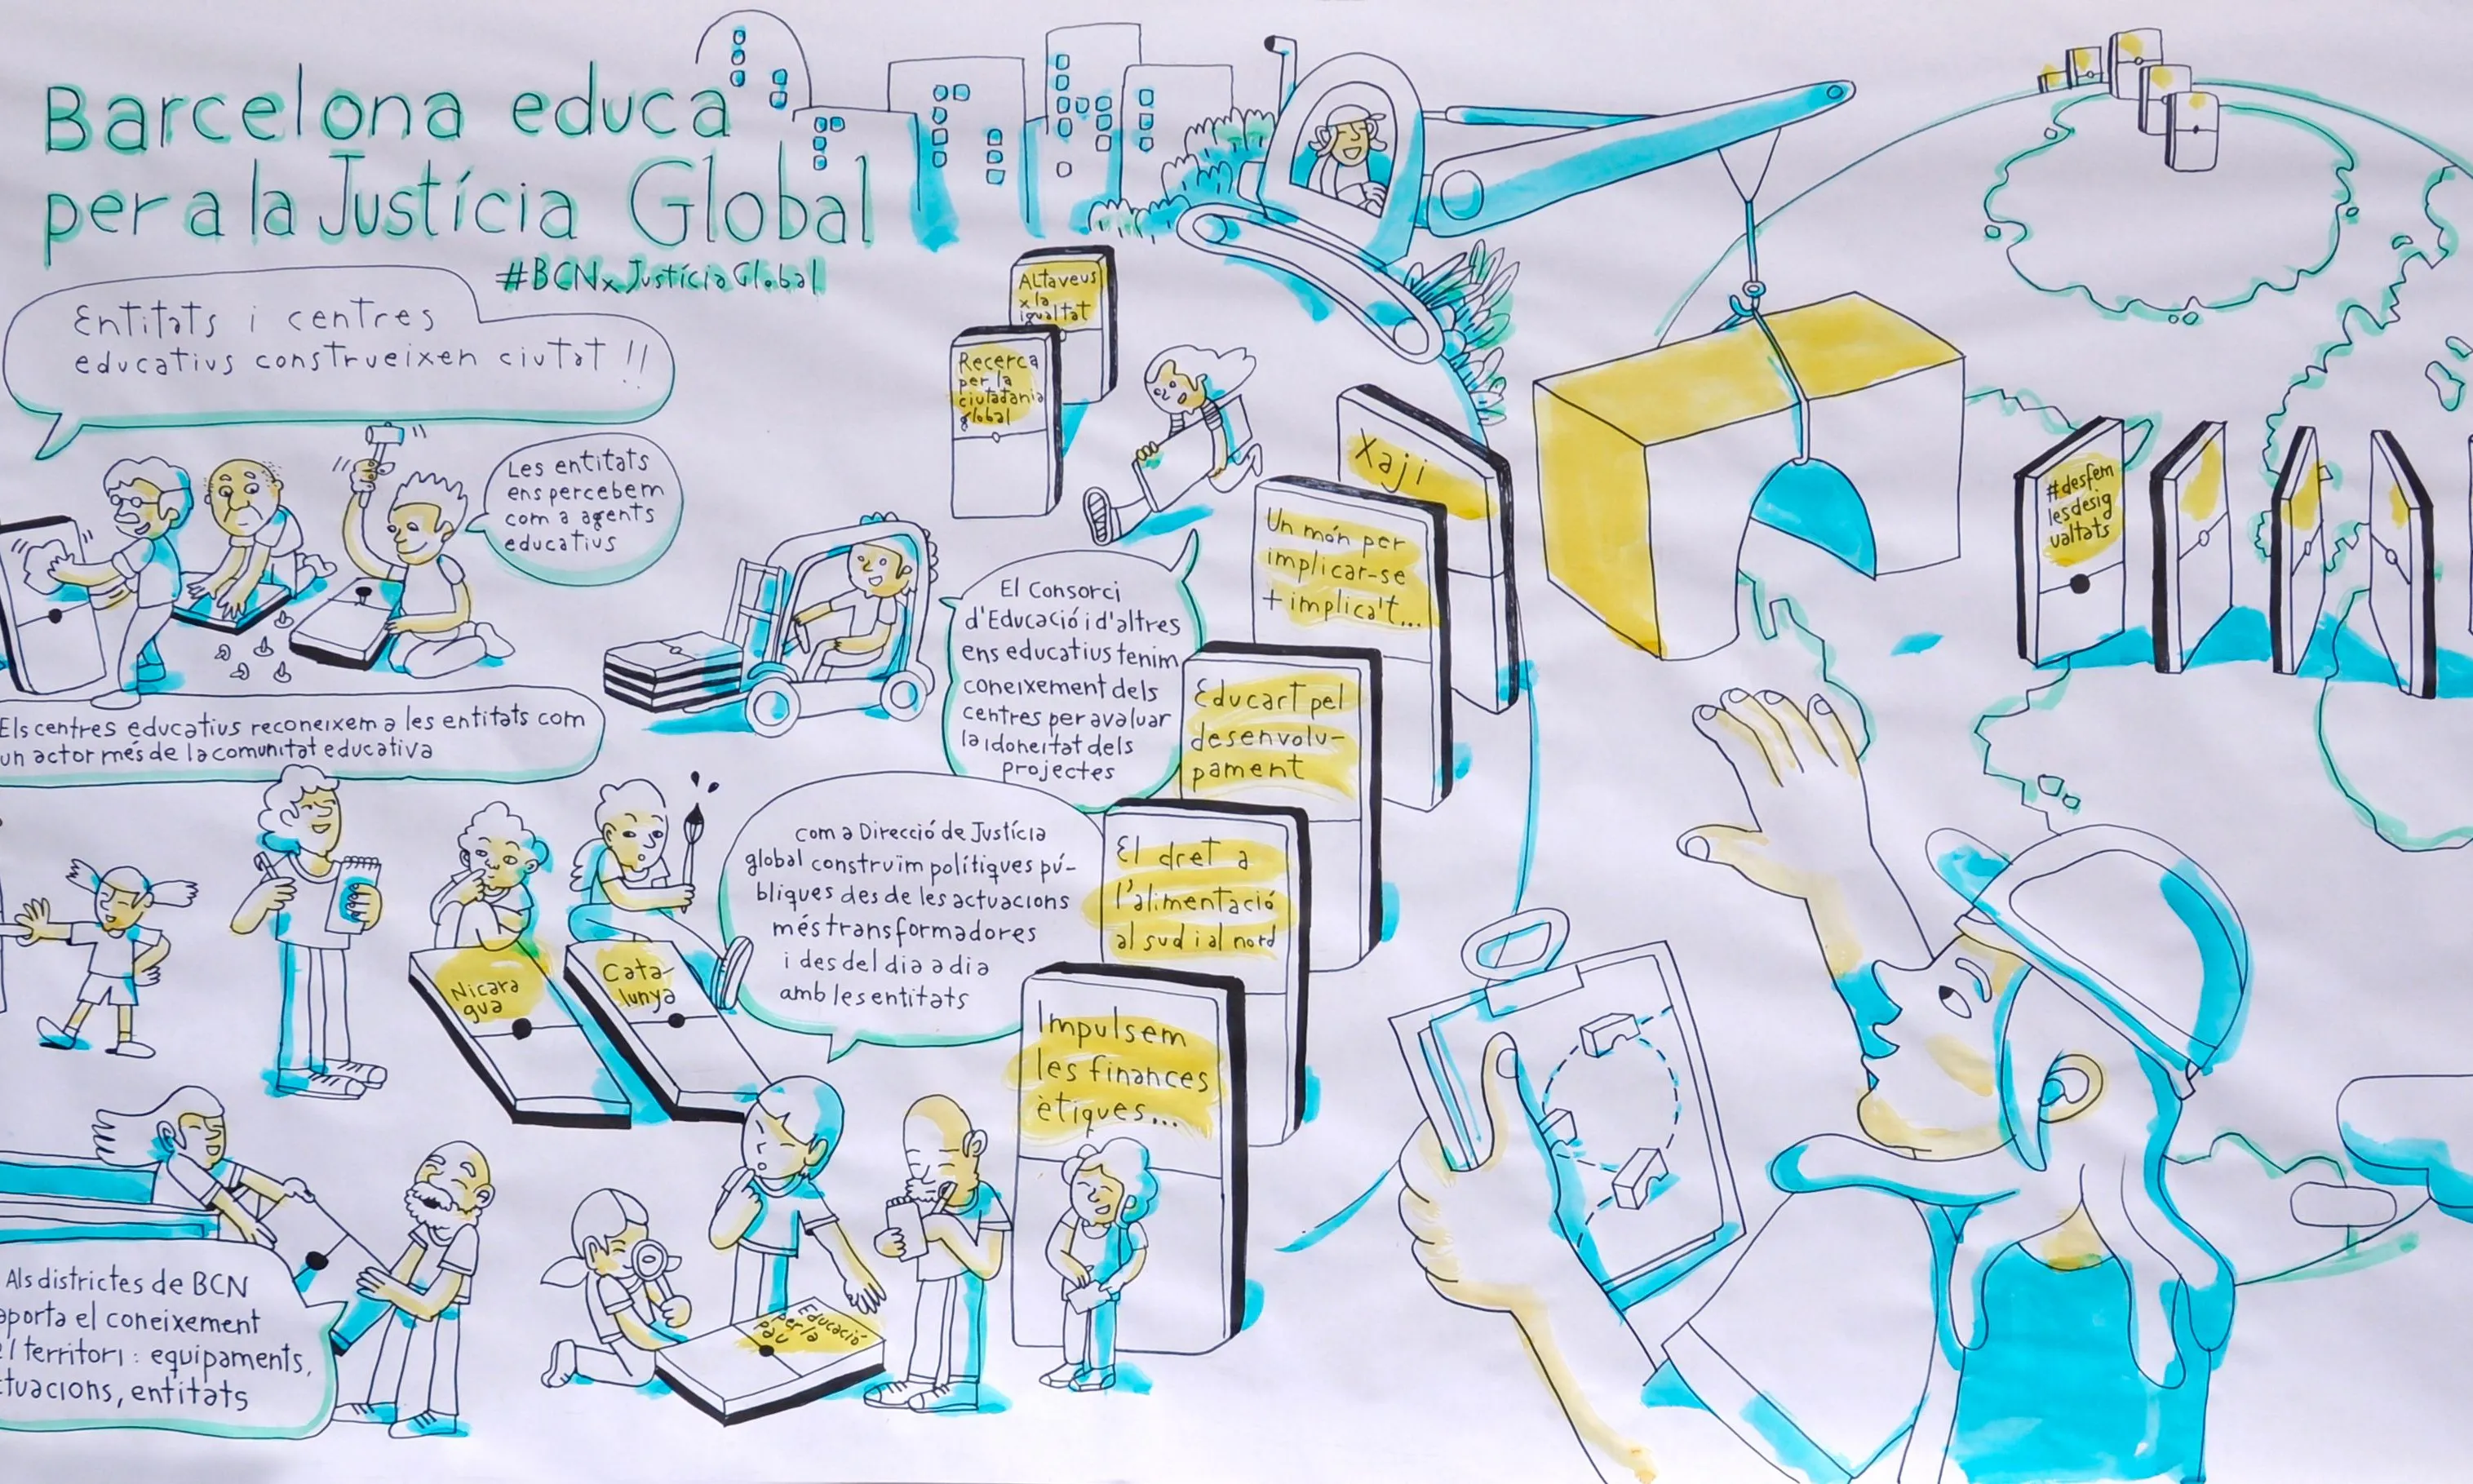 Barcelona educa
per a la Justícia Global
#BCNxJustíciaGlobal
Entitats i centres
educatius construeixen ciutat !!
Les entitats
ens percebem
com a agents
educatius
Els centres educatius reconeixem a les entitats com
un actor més de la comunitat educativa
Altaveus
x la
igualtat
Recerca
per la
ciutadania
global
El Consorci
d'Educació i d'altres
ens educatius tenim
coneixement dels
centres per avaluar
la idoneitat dels
projectes
Xaji
Un món per
implicar-se
+ implica't...
Educart pel
desenvolu-
pament
El dret a
l'alimentació
al sud i al nord
Impulsem
les finances
ètiques...
com a Direcció de Justícia
global construïm polítiques pú-
bliques des de les actuacions
més transformadores
i des del dia a dia
amb les entitats
Nicara
gua
Cata-
lunya
Educació
per la
pau
Als districtes de BCN
aporta el coneixement
territori: equipaments,
entitats
#desfem
lesdesig
ualtats